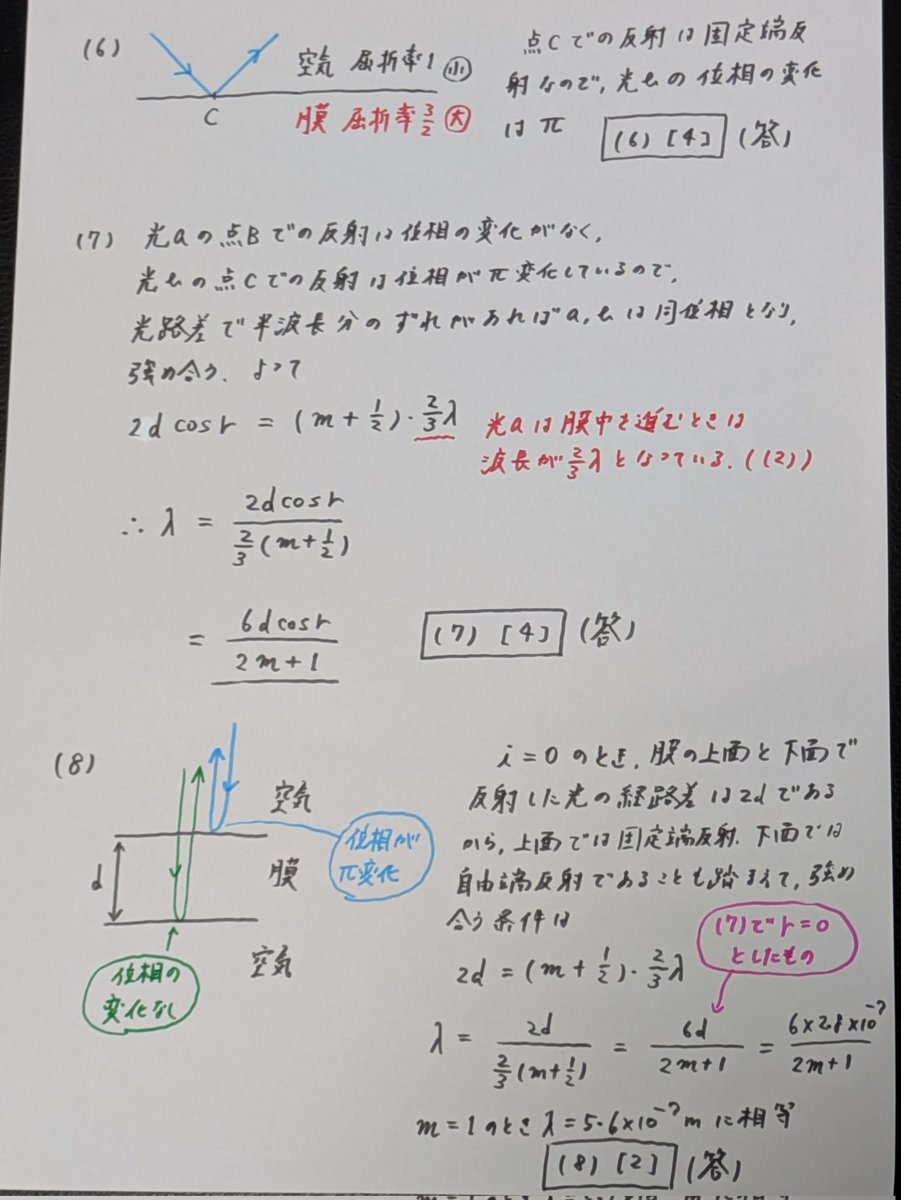 (6)
空気 屈折率1 小
膜 屈折率3/2 大
C
点Cでの反射は固定端反
射なので,光bの位相の変化
はπ
(6) [4] (答)
(7) 光aの点Bでの反射は位相の変化がなく,
光bの点Cでの反射は位相がπ変化しているので,
光路差で半波長分のずれがあればa,bは同位相となり,
強め合う. よって
2d cosr = (m + 1/2)・2/3λ
光aは膜中を進むときは
波長が2/3λとなっている. ((2))
∴ λ = 2dcosr / 2/3(m+1/2)
= 6dcosr / 2m+1
(7) [4] (答)
(8)
空気
位相が
π変化
d
膜
空気
位相の
変化なし
i=0のとき, 膜の上面と下面で
反射した光の経路差は2dである
から, 上面では固定端反射. 下面では
自由端反射であることも踏まえて, 強め
合う条件は
(7)でr=0
としたもの
2d = (m + 1/2)・2/3λ
λ = 2d / 2/3(m+1/2) = 6d / 2m+1 = 6×2.8×10⁻⁷ / 2m+1
m=1のときλ=5.6×10⁻⁷mに相等
(8) [2] (答)